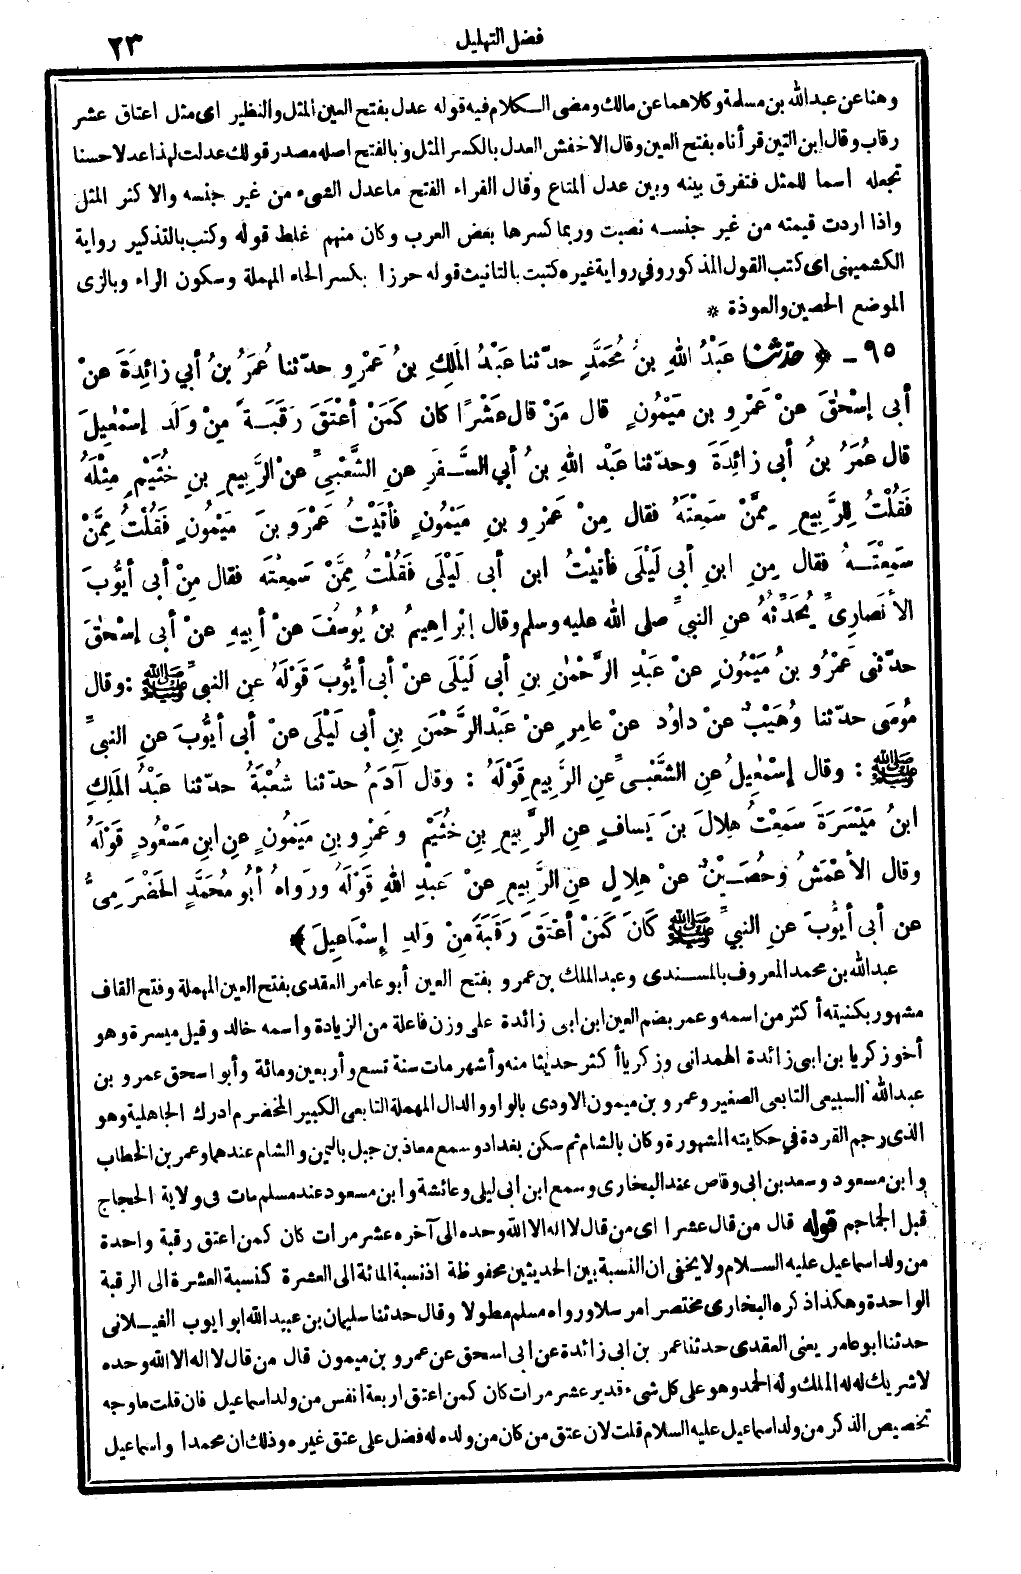 فضل التهليل
٢٣
وهنا عن عبدالله بن مسلمة وكلاهما عن مالك ومضى الكلام فيه قوله عدل بفتح العين المثل والنظير اى مثل اعتاق عشر
رقاب وقال ابن التين قرأناه بفتح العين وقال الاخفش العدل بالكسر المثل وبالفتح اصله مصدر قولك عدلت لهذا عدلا حسنا
تجعله اسما للمثل فتفرق بينه وبين عدل المتاع وقال الفراء الفتح ماعدل الشىء من غير جنسه والاكثر المثل
واذا اردت قيمته من غير جنسه نصبت وربما كسرها بعض العرب وكان منهم غلط قوله وكتب بالتذكير رواية
الكشميهنى اى كتب القول المذكور وفي رواية غيره كتبت بالتانيث قوله حرزا بكسر الحاء المهملة وسكون الراء وبالزى
الموضع الحصين والعوذة *
٩٥ - ﴿ حدثنا عَبْدُ اللهِ بنُ مُحَمَّدٍ حدّثنا عَبْدُ المَلِكِ بنُ عَمْرٍو حدّثنا عُمَرُ بنُ أبي زائِدَةَ عنْ
أبى إسْحٰقَ عنْ عَمْرِو بن مَيْمُونٍ قال مَنْ قال عَشْرًا كان كَمَنْ أعْتَقَ رَقَبَةً مِنْ وَلَدِ إسْمٰعِيلَ
قال عُمَرُ بنُ أبى زائِدَةَ وحدّثنا عَبْد اللهِ بنُ أبي السَّفَرِ عنِ الشَّعْبىِّ عنْ الرَّبِيعِ بنِ خُثَيْمٍ مِثْلَهُ
فَقُلْتُ لِلرَّبِيعِ مِمَّنْ سَمِعْتَهُ فقال مِنْ عَمْرِو بنِ مَيْمُونٍ فأتَيْتُ عَمْرَو بنَ مَيْمُونٍ فَقُلْتُ مِمَّنْ
سَمِعْتَهُ فقال مِنِ ابنِ أبى لَيْلَى فأتيْتُ ابن أبى لَيْلَى فَقُلْتُ مِمَّنْ سَمِعْتَه فقال مِنْ أبى أيُّوبَ
الأنْصارِىِّ يُحَدِّثُهُ عنِ النبىِّ صلى الله عليه وسلم وقال إبْراهِيمُ بنُ يُوسُفَ عنْ أبِيهِ عنْ أبى إسْحٰقَ
حدّثنى عَمْرُو بنُ مَيْمُونٍ عنْ عَبْدِ الرَّحْمٰنِ بنِ أبى لَيْلَى عنْ أبى أيُّوبَ قَوْلَهُ عنِ النبىِّ ﷺ : وقال
مُوسَى حدّثنا وُهَيْبٌ عنْ داوُدَ عنْ عامِرٍ عنْ عَبْدِ الرَّحْمَنِ بنِ أبى لَيْلَى عنْ أبى أيُّوبَ عنِ النبىِّ
ﷺ : وقال إسْمٰعِيلُ عنِ الشَّعْبىِّ عنِ الرَّبِيعِ قَوْلَهُ : وقال آدَمُ حدّثنا شُعْبَةُ حدّثنا عَبْدُ المَلِكِ
ابنُ مَيْسَرَةَ سَمِعْتُ هِلالَ بنَ يَسافٍ عنِ الرَّبِيعِ بنِ خُثَيْمٍ وعَمْرِو بنِ مَيْمُونٍ عنِ ابنِ مَسْعُودٍ قَوْلَهُ
وقال الأعْمَشُ وحُصَيْنٌ عنْ هِلالٍ عنِ الرَّبِيعِ عنْ عَبدِ اللهِ قَوْلَهُ ورَواهُ أبُو مُحَمَّدٍ الحَضْرَمِىُّ
عن أبى أيُّوبَ عنِ النبىِّ ﷺ كَانَ كَمَنْ أعْتَقَ رَقَبَةً مِنْ وَلَدِ إِسْمَاعِيلَ ﴾
عبدالله بن محمد المعروف بالمسندى وعبد الملك بن عمرو بفتح العين أبو عامر العقدى بفتح العين المهملة وفتح القاف
مشهور بكنيته أكثر من اسمه وعمر بضم العين ابن ابى زائدة على وزن فاعلة من الزيادة واسمه خالد وقيل ميسرة وهو
أخو زكريا بن ابى زائدة الهمدانى وزكريا أكثر حديثا منه وأشهر مات سنة تسع وأربعين ومائة وأبو اسحق عمرو بن
عبدالله السبيعى التابعى الصغير وعمرو بن ميمون الاودى بالواو والدال المهملة التابعى الكبير المخضرم ادرك الجاهلية وهو
الذى رجم القردة في حكايته المشهورة وكان بالشام ثم سكن بغداد وسمع معاذ بن جبل باليمن والشام عندهما وعمر بن الخطاب
وابن مسعود وسعد بن ابى وقاص عند البخارى وسمع ابن ابى ليلى وعائشة وابن مسعود عند مسلم مات فى ولاية الحجاج
قبل الجماجم قوله قال من قال عشرا اى من قال لا اله الا الله وحده الى آخره عشر مرات كان كمن اعتق رقبة واحدة
من ولد اسماعيل عليه السلام ولا يخفى ان النسبة بين الحديثين محفوظة اذ نسبة المائة الى العشرة كنسبة العشرة الى الرقبة
الواحدة وهكذا ذكره البخارى مختصر امرسلا ورواه مسلم مطولا وقال حدثنا سليمان بن عبيد الله ابو ايوب الغيلانى
حدثنا ابو عامر يعنى العقدى حدثنا عمر بن ابى زائدة عن ابى اسحق عن عمرو بن ميمون قال من قال لا اله الا الله وحده
لا شريك له له الملك وله الحمد وهو على كل شىء قدير عشر مرات كان كمن اعتق اربعة انفس من ولد اسماعيل فان قلت ما وجه
تخصيص الذكر من ولد اسماعيل عليه السلام قلت لان عتق من كان من ولده له فضل على عتق غيره وذلك ان محمدا واسماعيل